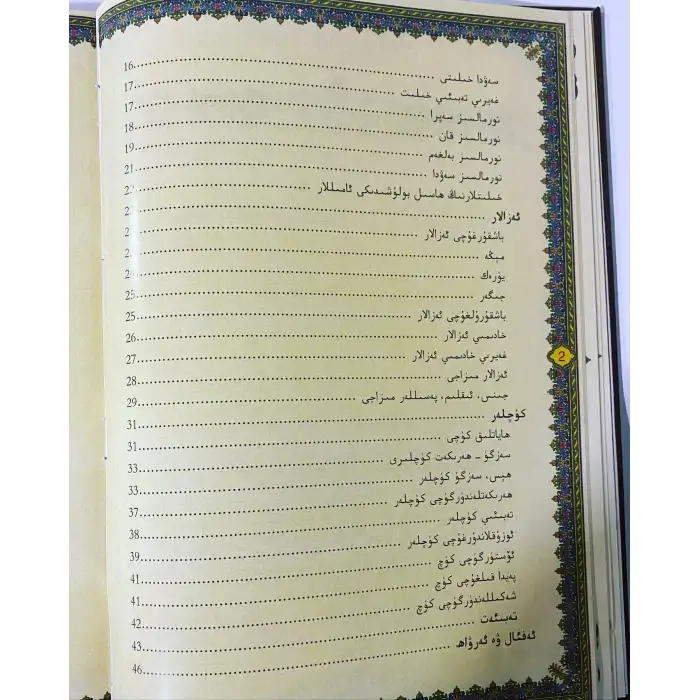 سەۋدا خىلىتى ........ 16
غەيرىي تەبىئىي خىلىت ........ 17
نورمالسىز سەپرا ........ 17
نورمالسىز قان ........ 18
نورمالسىز بەلغەم ........ 19
نورمالسىز سەۋدا ........ 21
خىلىتلارنىڭ ھاسىل بولۇشىدىكى ئامىللار ........
ئەزالار ........
باشقۇرغۇچى ئەزالار ........
مېڭە ........
يۈرەك ........
جىگەر ........ 25
باشقۇرۇلغۇچى ئەزالار ........ 25
خادىمىي ئەزالار ........ 26
غەيرىي خادىمىي ئەزالار ........ 27
ئەزالار مىزاجى ........ 28
جىنىس، ئىقلىم، پەسىللەر مىزاجى ........ 29
كۈچلەر ........ 31
ھاياتلىق كۈچى ........ 31
سەزگۈ - ھەرىكەت كۈچلىرى ........ 33
ھېس، سەزگۈ كۈچلەر ........ 33
ھەرىكەتلەندۈرگۈچى كۈچلەر ........ 37
تەبىئىي كۈچلەر ........ 38
ئوزۇقلاندۇرغۇچى كۈچلەر ........ 39
ئۆستۈرگۈچى كۈچ ........ 41
پەيدا قىلغۇچى كۈچ ........ 41
شەكىللەندۈرگۈچى كۈچ ........ 42
تەبىئەت ........ 43
ئەفئال ۋە ئەرۋاھ ........ 46
2